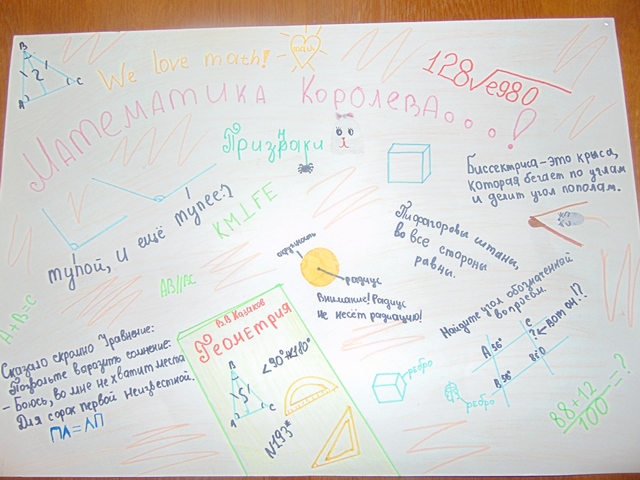 We love math!
math
128√e980
Математика Королева...!
Призраки
B
2
A
C
тупой, и ещё тупее?
KM⊥FE
Биссектриса - это крыса,
которая бегает по углам
и делит угол пополам.
Пифагоровы штаны,
во все стороны
равны.
окружность
радиус
Внимание! Радиус
не несёт радиацию!
AB||BC
A+B=C
Сказало скромно Уравнение:
Позвольте выразить сомнение:
- Боюсь, во мне не хватит места
Для сорок первой Неизвестной.
ПЛ = ЛП
В.В Казаков
Геометрия
<90°
B
5
A
C
N193*
Найдите угол обозначенной
вопросом
A 50°
C
?
Вот он!?
B 50°
ребро
ребро
88+12
100
=?